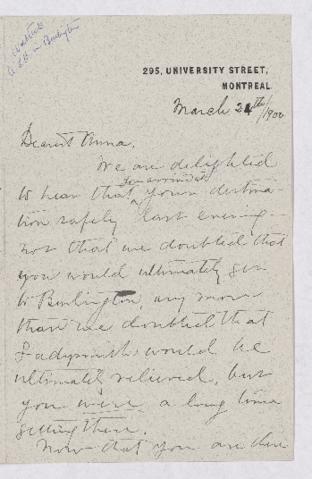 in Burlington
295, UNIVERSITY STREET,
MONTREAL.
March 24th/1900
Dearest Anna,
We are delighted
to hear that you arrived at your destina-
tion safely last evening -
not that we doubted that
you would ultimately get
to Burlington, any more
than we doubted that
Ladysmith would be
ultimately relieved, but
you were a long time
getting there.
Now that you are there